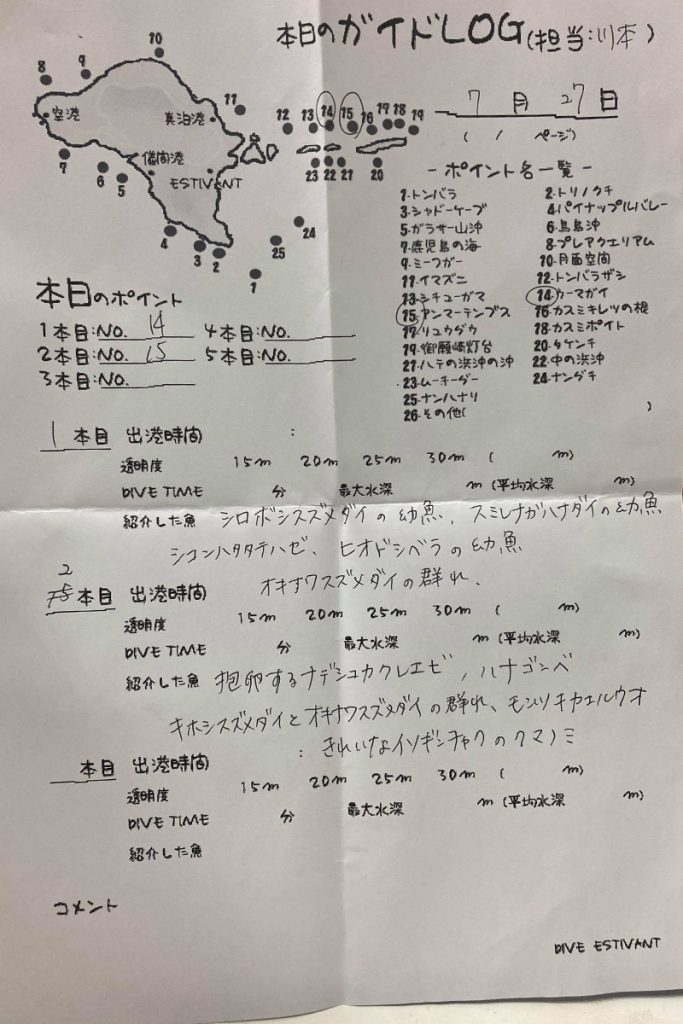 本日のガイドLOG(担当:川本)
7月27日
( / ページ)
10
8 9
空港
真泊港
11
12 13 14 15 16 17 18 19
儀間港
7 6 5
ESTIVANT
23 22 21 20
24
4 3 2 25
1
-ポイント名一覧-
1.トンバラ 2.トリノクチ
3.シャドーケーブ 4.パイナップルバレー
5.ガラサー山沖 6.鳥島沖
7.鹿児島の海 8.プレアクエリアム
9.ミーフガー 10.月面空間
11.イマズニ 12.トンバラザシ
13.シチューガマ 14.カーマガイ
15.アンマーテンプス 16.カスミキレツの根
17.リュウダウ 18.カスミポイト
19.御願崎灯台 20.タケンチ
21.ハテの浜沖の沖 22.中の浜沖
23.ムーキーダー 24.ナンダチ
25.ナンハナリ
26.その他( )
本日のポイント
1本目:NO. 14 4本目:NO.
2本目:NO. 15 5本目:NO.
3本目:NO.
1本目 出港時間 :
透明度 15m 20m 25m 30m ( m)
DIVE TIME 分 最大水深 m (平均水深 m)
紹介した魚 シロボシスズメダイの幼魚、スミレナガハナダイの幼魚
シコンハタタテハゼ、ヒオドシベラの幼魚
オキナワスズメダイの群れ、
2本目 出港時間
透明度 15m 20m 25m 30m ( m)
DIVE TIME 分 最大水深 m (平均水深 m)
紹介した魚 抱卵するナデシコカクレエビ、ハナゴンベ
キホシスズメダイとオキナワスズメダイの群れ、モンツキカエルウオ
きれいなイソギンチャクのクマノミ
本目 出港時間 :
透明度 15m 20m 25m 30m ( m)
DIVE TIME 分 最大水深 m (平均水深 m)
紹介した魚
コメント
DIVE ESTIVANT